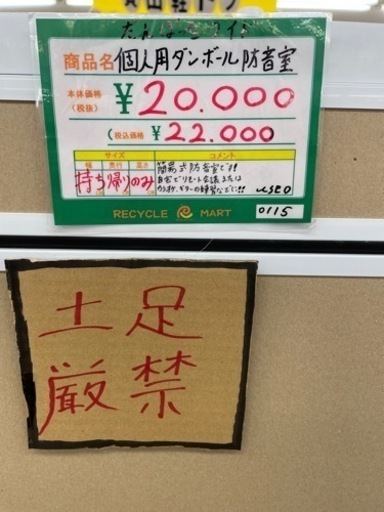 だんぼっちワイド
商品名 個人用ダンボール防音室
本体価格
(税抜)
¥20.000
(税込価格 ¥22.000
サイズ コメント
幅 奥行 高さ
持ち帰りのみ
簡易式防音室です!!
自宅でリモート会議または
カラオケ、ギターの練習などに!!
USED
RECYCLE MART
0115
土足
厳禁